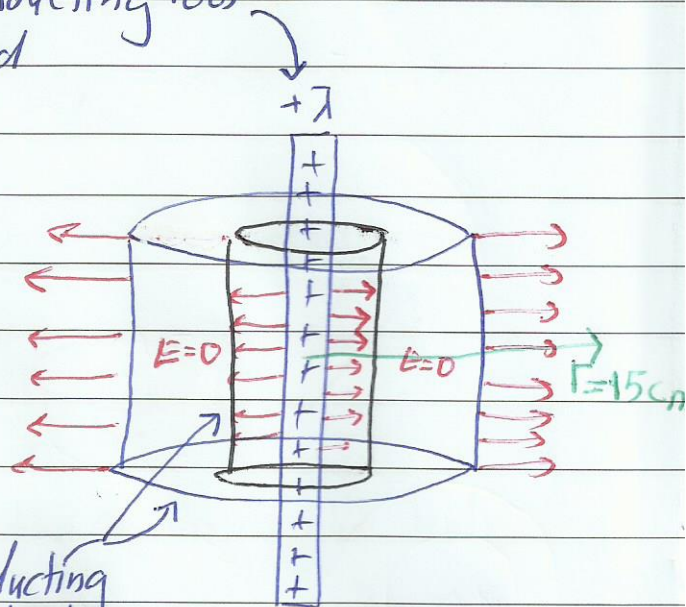 d
+λ
E=0
E=0
r=15c
ducting